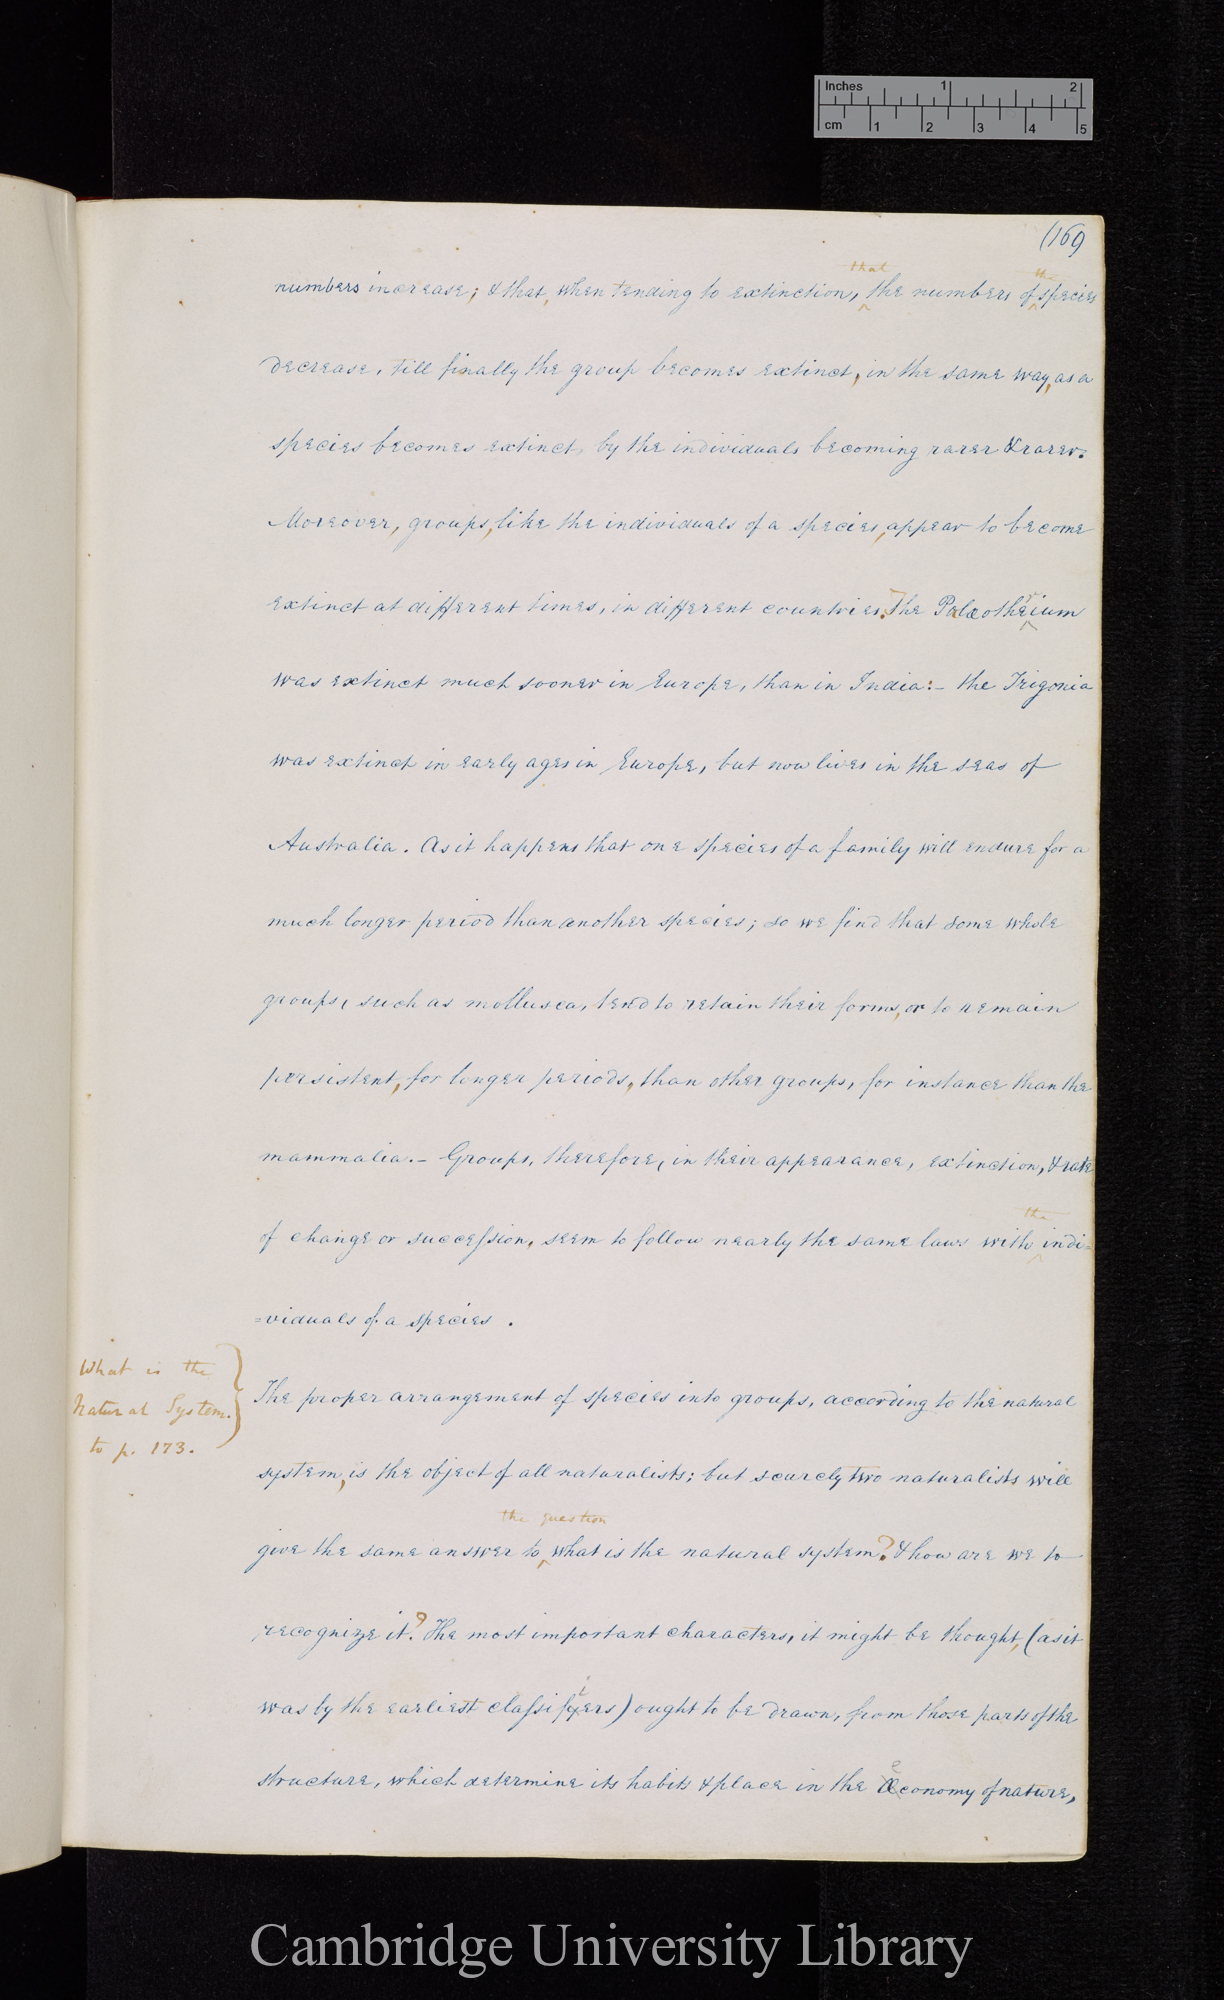 Inches 1 2
cm 1 2 3 4 5
(169
that the
numbers increase; & that, when tending to extinction, the numbers of species
decrease, till finally the group becomes extinct, in the same way, as a
species becomes extinct, by the individuals becoming rarer & rarer.
Moreover, groups, like the individuals of a species, appear to become
extinct at different times, in different countries. The Palæotherium
was extinct much sooner in Europe, than in India:– the Trigonia
was extinct in early ages in Europe, but now lives in the seas of
Australia. As it happens that one species of a family will endure for a
much longer period than another species; so we find that some whole
groups, such as mollusca, tend to retain their forms, or to remain
persistent, for longer periods, than other groups, for instance than the
mammalia.– Groups, therefore, in their appearance, extinction, & rate
the
of change or succession, seem to follow nearly the same laws with indi=
=viduals of a species.
What is the
Natural System.
to p. 173.
The proper arrangement of species into groups, according to the natural
system, is the object of all naturalists; but scarcely two naturalists will
the question
give the same answer to what is the natural system? & how are we to
recognize it? The most important characters, it might be thought, (as it
i
was by the earliest classifyers) ought to be drawn, from those parts of the
structure, which determine its habits & place in the Œconomy of nature,
Cambridge University Library